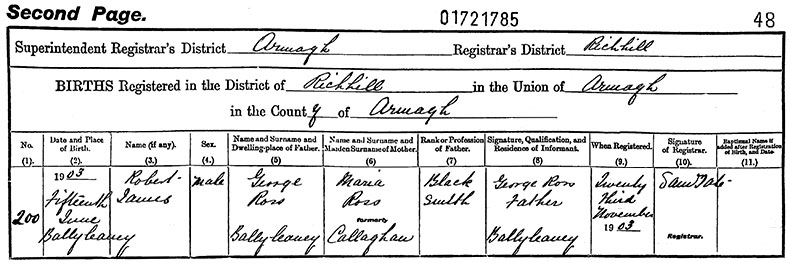 Second Page. 01721785 48
Superintendent Registrar's District Armagh Registrar's District Richhill
BIRTHS Registered in the District of Richhill in the Union of Armagh
in the County of Armagh
No. (1). Date and Place of Birth. (2). Name (if any). (3.) Sex. (4.) Name and Surname and Dwelling-place of Father. (5) Name and Surname and Maiden Surname of Mother. (6) Rank or Profession of Father. (7) Signature, Qualification, and Residence of Informant. (8) When Registered. (9.) Signature of Registrar. (10.) Baptismal Name if added after Registration of Birth, and Date. (11.)
200 1903 Fifteenth June Ballyleaney Robert James Male George Ross Ballyleaney Maria Ross formerly Callaghan Black Smith George Ross Father Ballyleaney Twenty Third November 1903 Registrar.